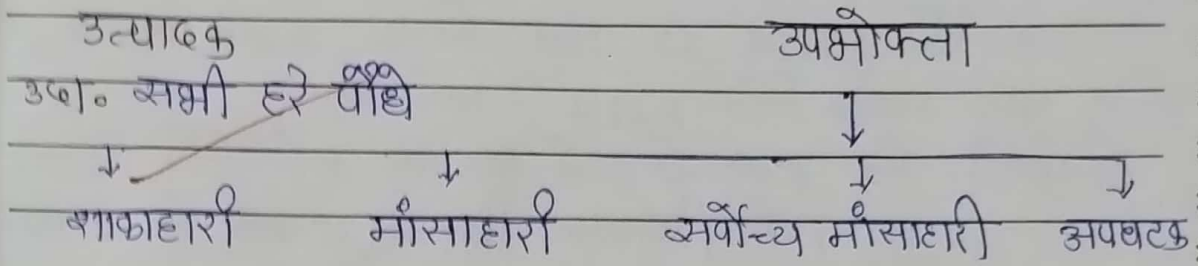 उत्पादक उपभोक्ता
उदा॰ सभी हरे पौधे
↓
↓ ↓ ↓ ↓
शाकाहारी मांसाहारी सर्वोच्य मांसाहारी अपघटक